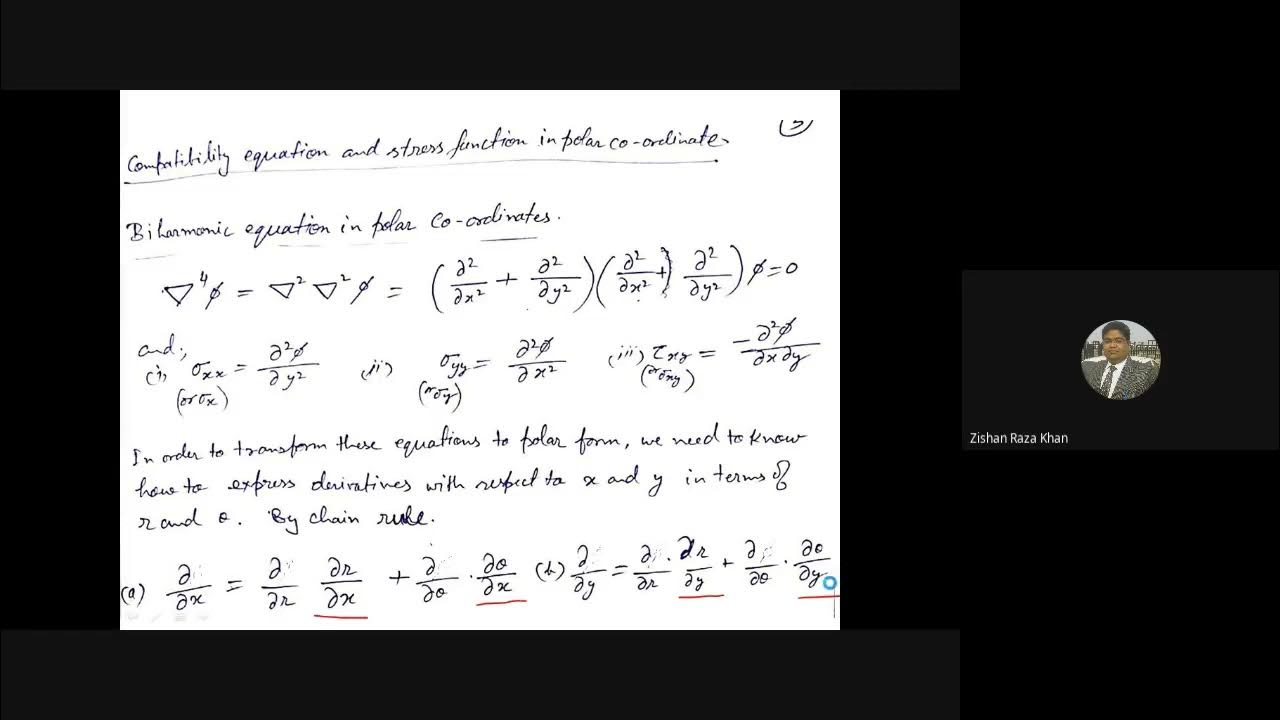 Compatibility equation and stress function in polar co-ordinate.
Biharmonic equation in polar Co-ordinates.
∇⁴φ = ∇²∇²φ = (∂²/∂x² + ∂²/∂y²)(∂²/∂x² + ∂²/∂y²)φ=0
and;
(i) σxx = ∂²φ/∂y² (ii) σyy = ∂²φ/∂x² (iii) τxy = -∂²φ/∂x∂y
(or σx) (or σy) (or σxy)
In order to transform these equations to polar form, we need to know
how to express derivatives with respect to x and y in terms of
r and θ. By chain rule.
(a) ∂/∂x = ∂/∂r ∂r/∂x + ∂/∂θ · ∂θ/∂x (b) ∂/∂y = ∂/∂r · ∂r/∂y + ∂/∂θ · ∂θ/∂y
Zishan Raza Khan